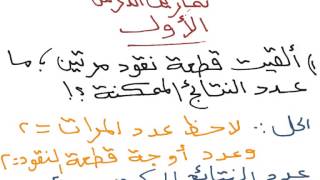 تمارين الدرس
الأول
١) ألقيت قطعة نقود مرتين؛ ما
عدد النتائج الممكنة ؟!
الحل :: لاحظ عدد المرات = ٢
وعدد أوجة قطعة النقود = ٢
عدد النتائج